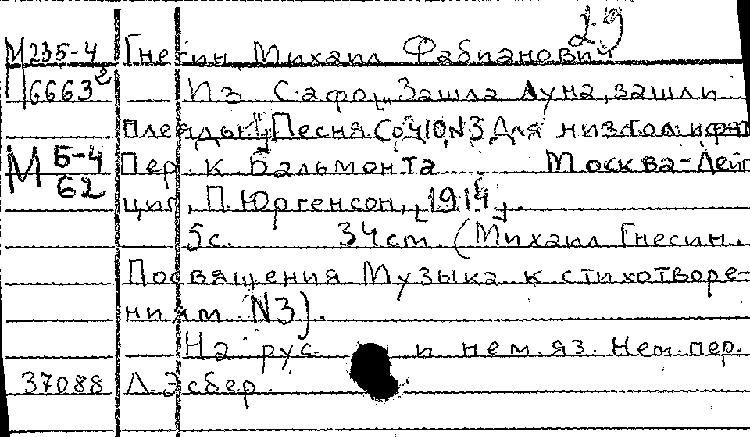 29
М235-4 Гнесин, Михаил Фабианович
6663² Из Сафо. „Зашла луна, зашли
плеяды". Песня. Соч.10, N3. Для низ. гол. и ф-п.
М Б-4 Пер. К. Бальмонта Москва-Лейп
62
циг, П. Юргенсон, [1914].
5с. 34cm. (Михаил Гнесин.
Посвящения. Музыка к стихотворе-
ниям. N3).
На рус. и нем. яз. Нем. пер.
37088 А. Эсбер.